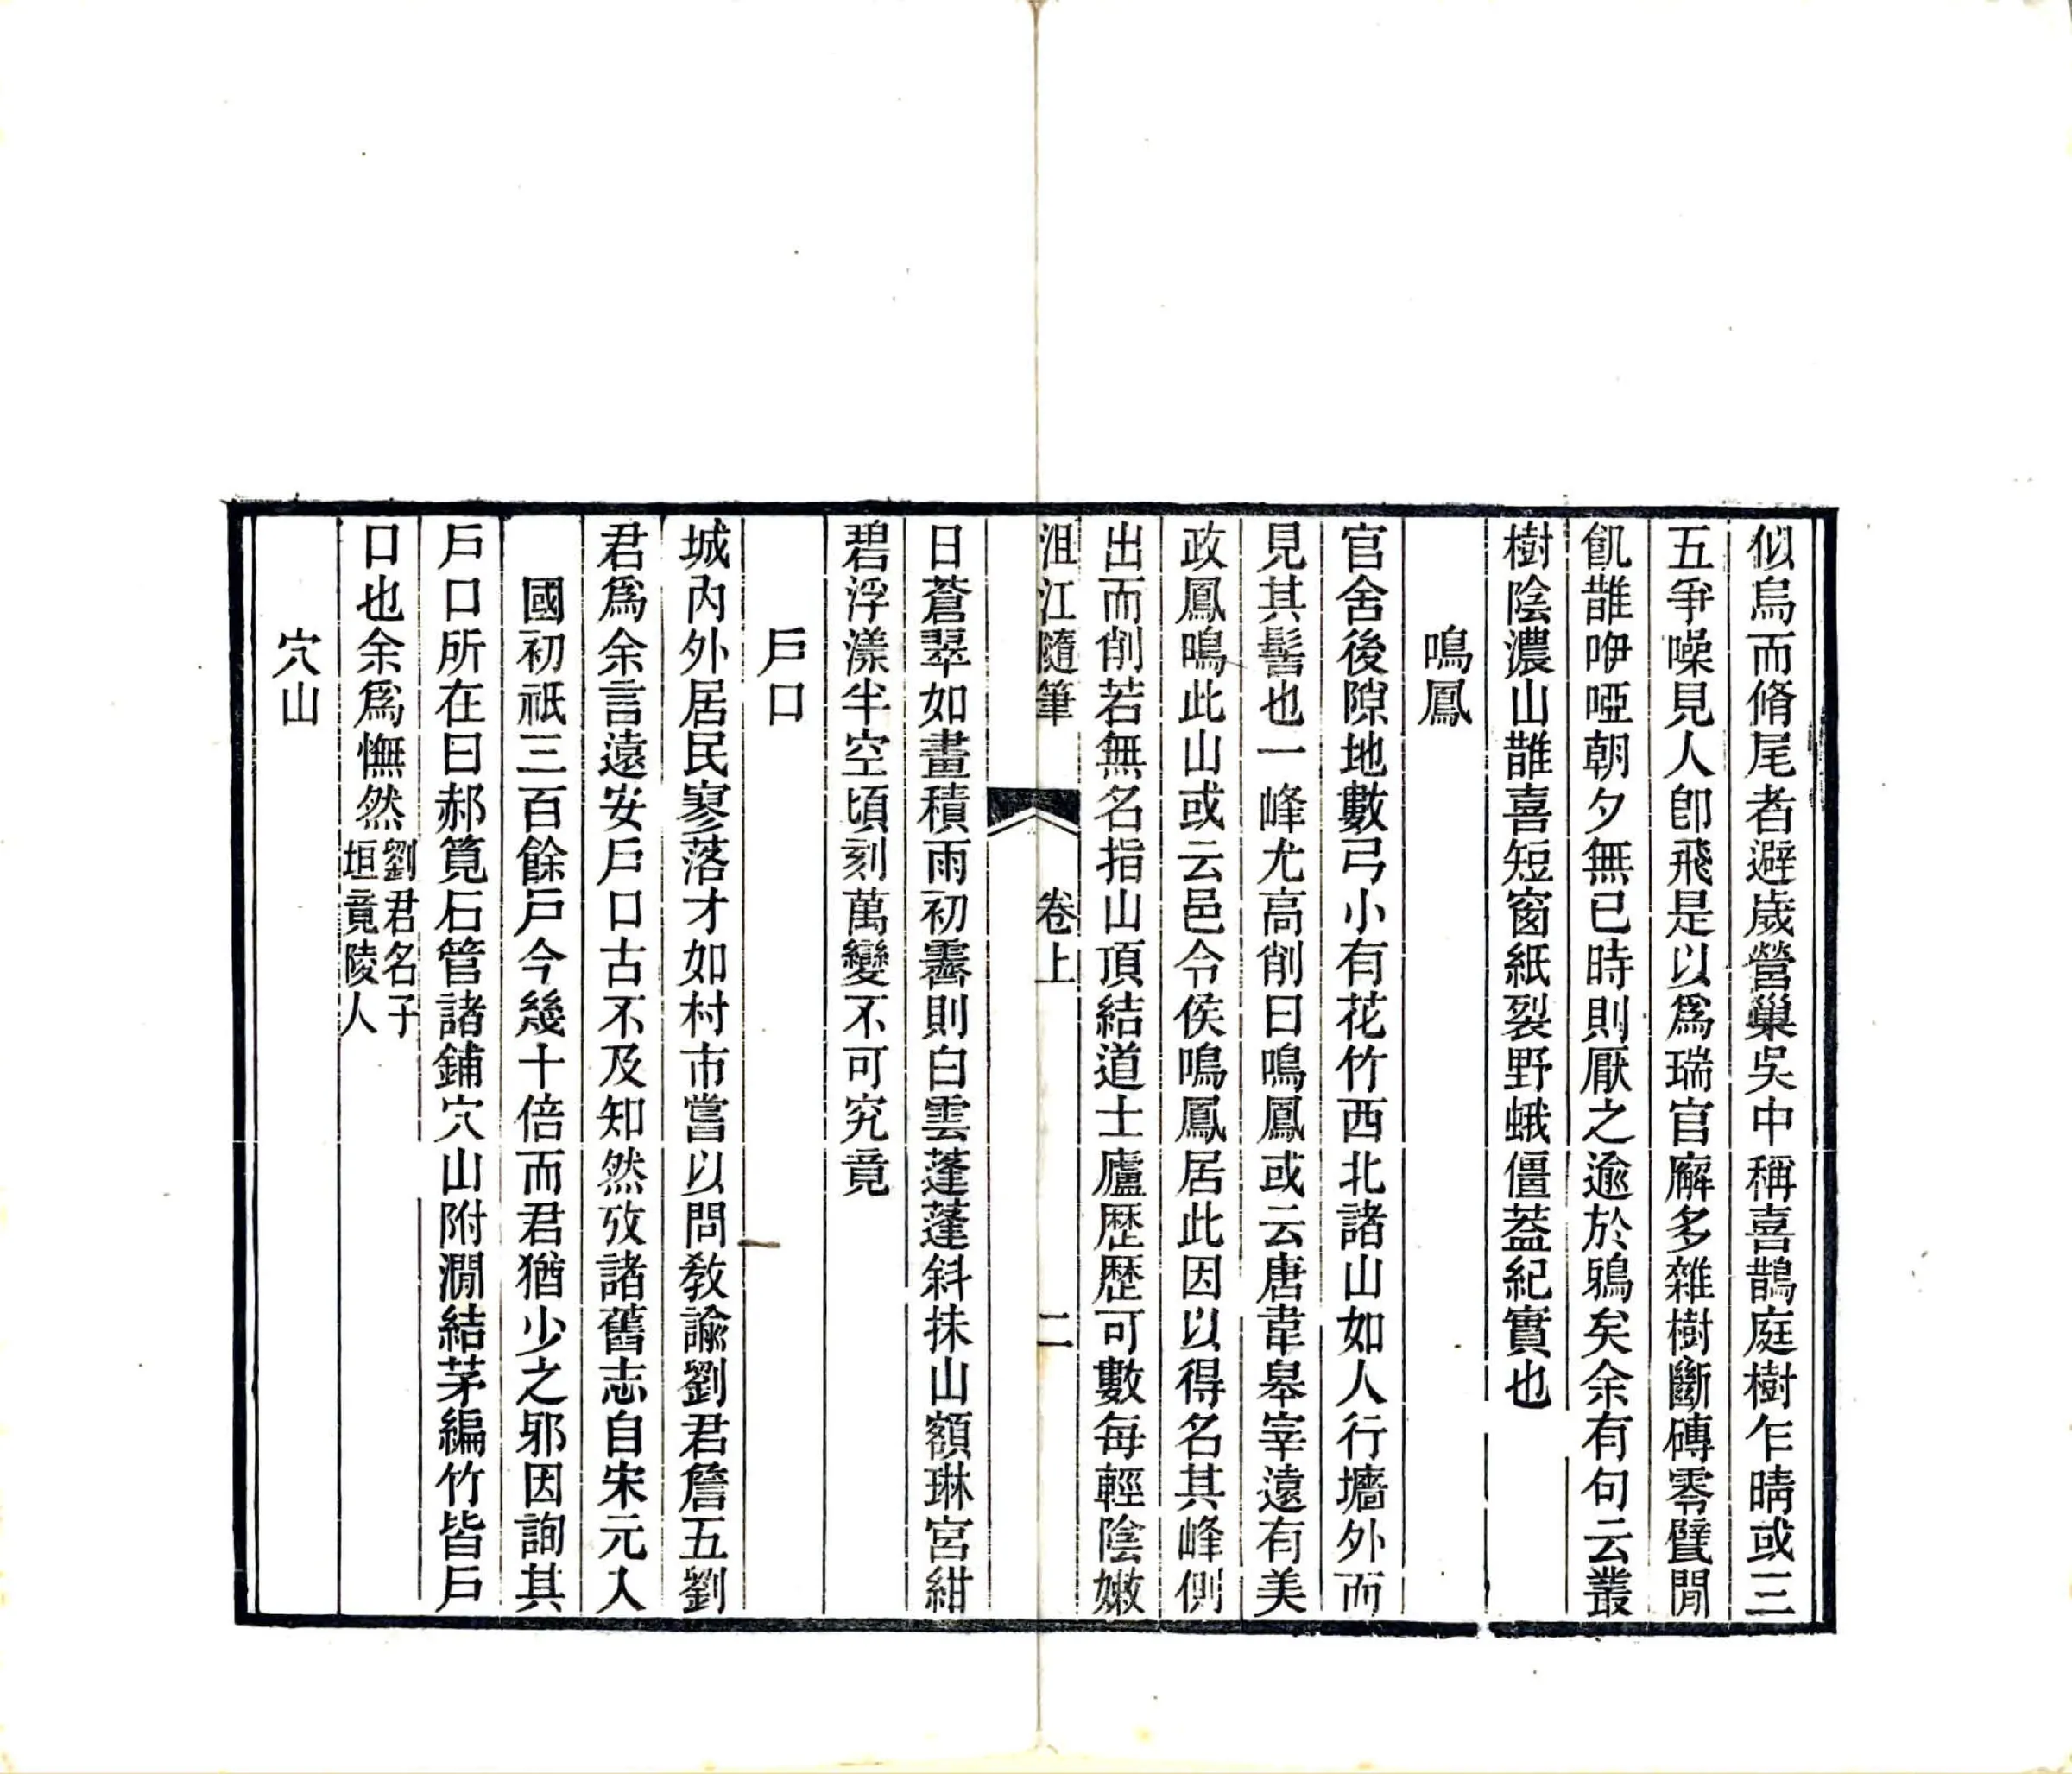 似烏而脩尾者避歲營巢吳中稱喜鵲庭樹乍晴或三
五爭噪見人卽飛是以爲瑞官廨多雜樹斷磚零甓閒
飢䧿咿啞朝夕無已時則厭之逾於鴉矣余有句云叢
樹陰濃山䧿喜短窗紙裂野蛾僵葢紀實也
鳴鳳
官舍後隙地數弓小有花竹西北諸山如人行墻外而
見其髻也一峰尤高削曰鳴鳳或云唐韋皋宰遠有美
政鳳鳴此山或云邑令侯鳴鳳居此因以得名其峰側
出而削若無名指山頂結道士廬歷歷可數每輕陰嫩
沮江隨筆 卷上 二
日蒼翠如畫積雨初霽則白雲蓬蓬斜抹山額琳宮紺
碧浮漾半空頃刻萬變不可究竟
戶口
城內外居民寥落才如村市嘗以問敎諭劉君詹五劉
君爲余言遠安戶口古不及知然攷諸舊志自宋元入
國初祇三百餘戶今幾十倍而君猶少之邪因詢其
戶口所在曰郝筧石管諸鋪穴山附澗結茅編竹皆戶
口也余爲憮然劉君名子
垣竟陵人
穴山